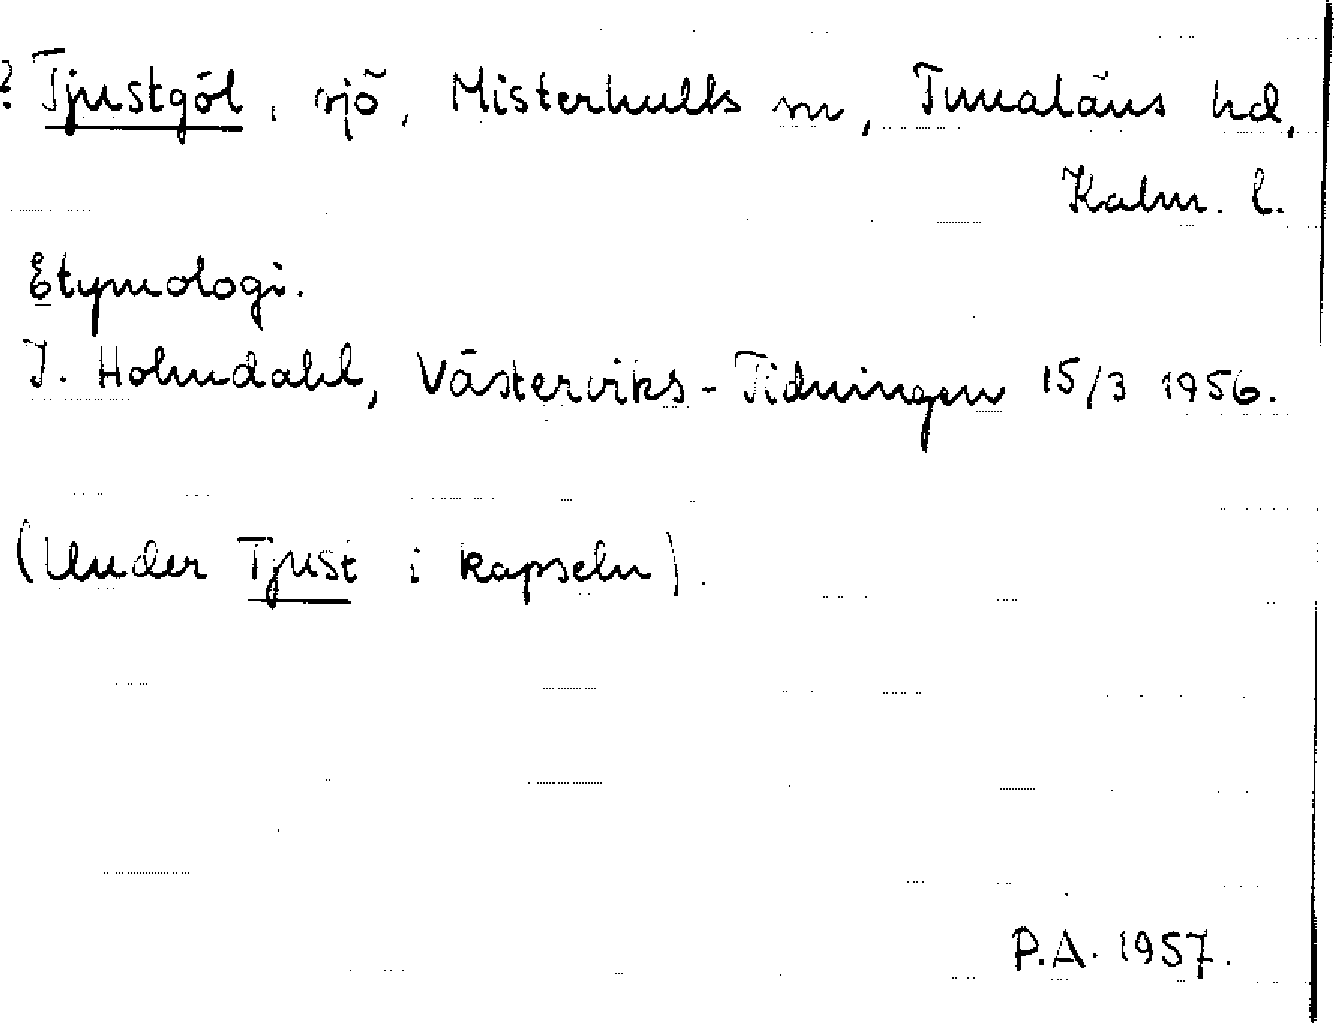 ? Tjustgöl, sjö, Misterhults sn, Tunaläns hd,
Kalm. l.
Etymologi.
J. Holmdahl, Västerviks-Tidningen 15/3 1956.
(Under Tjust i kapseln).
P.A. 1957.